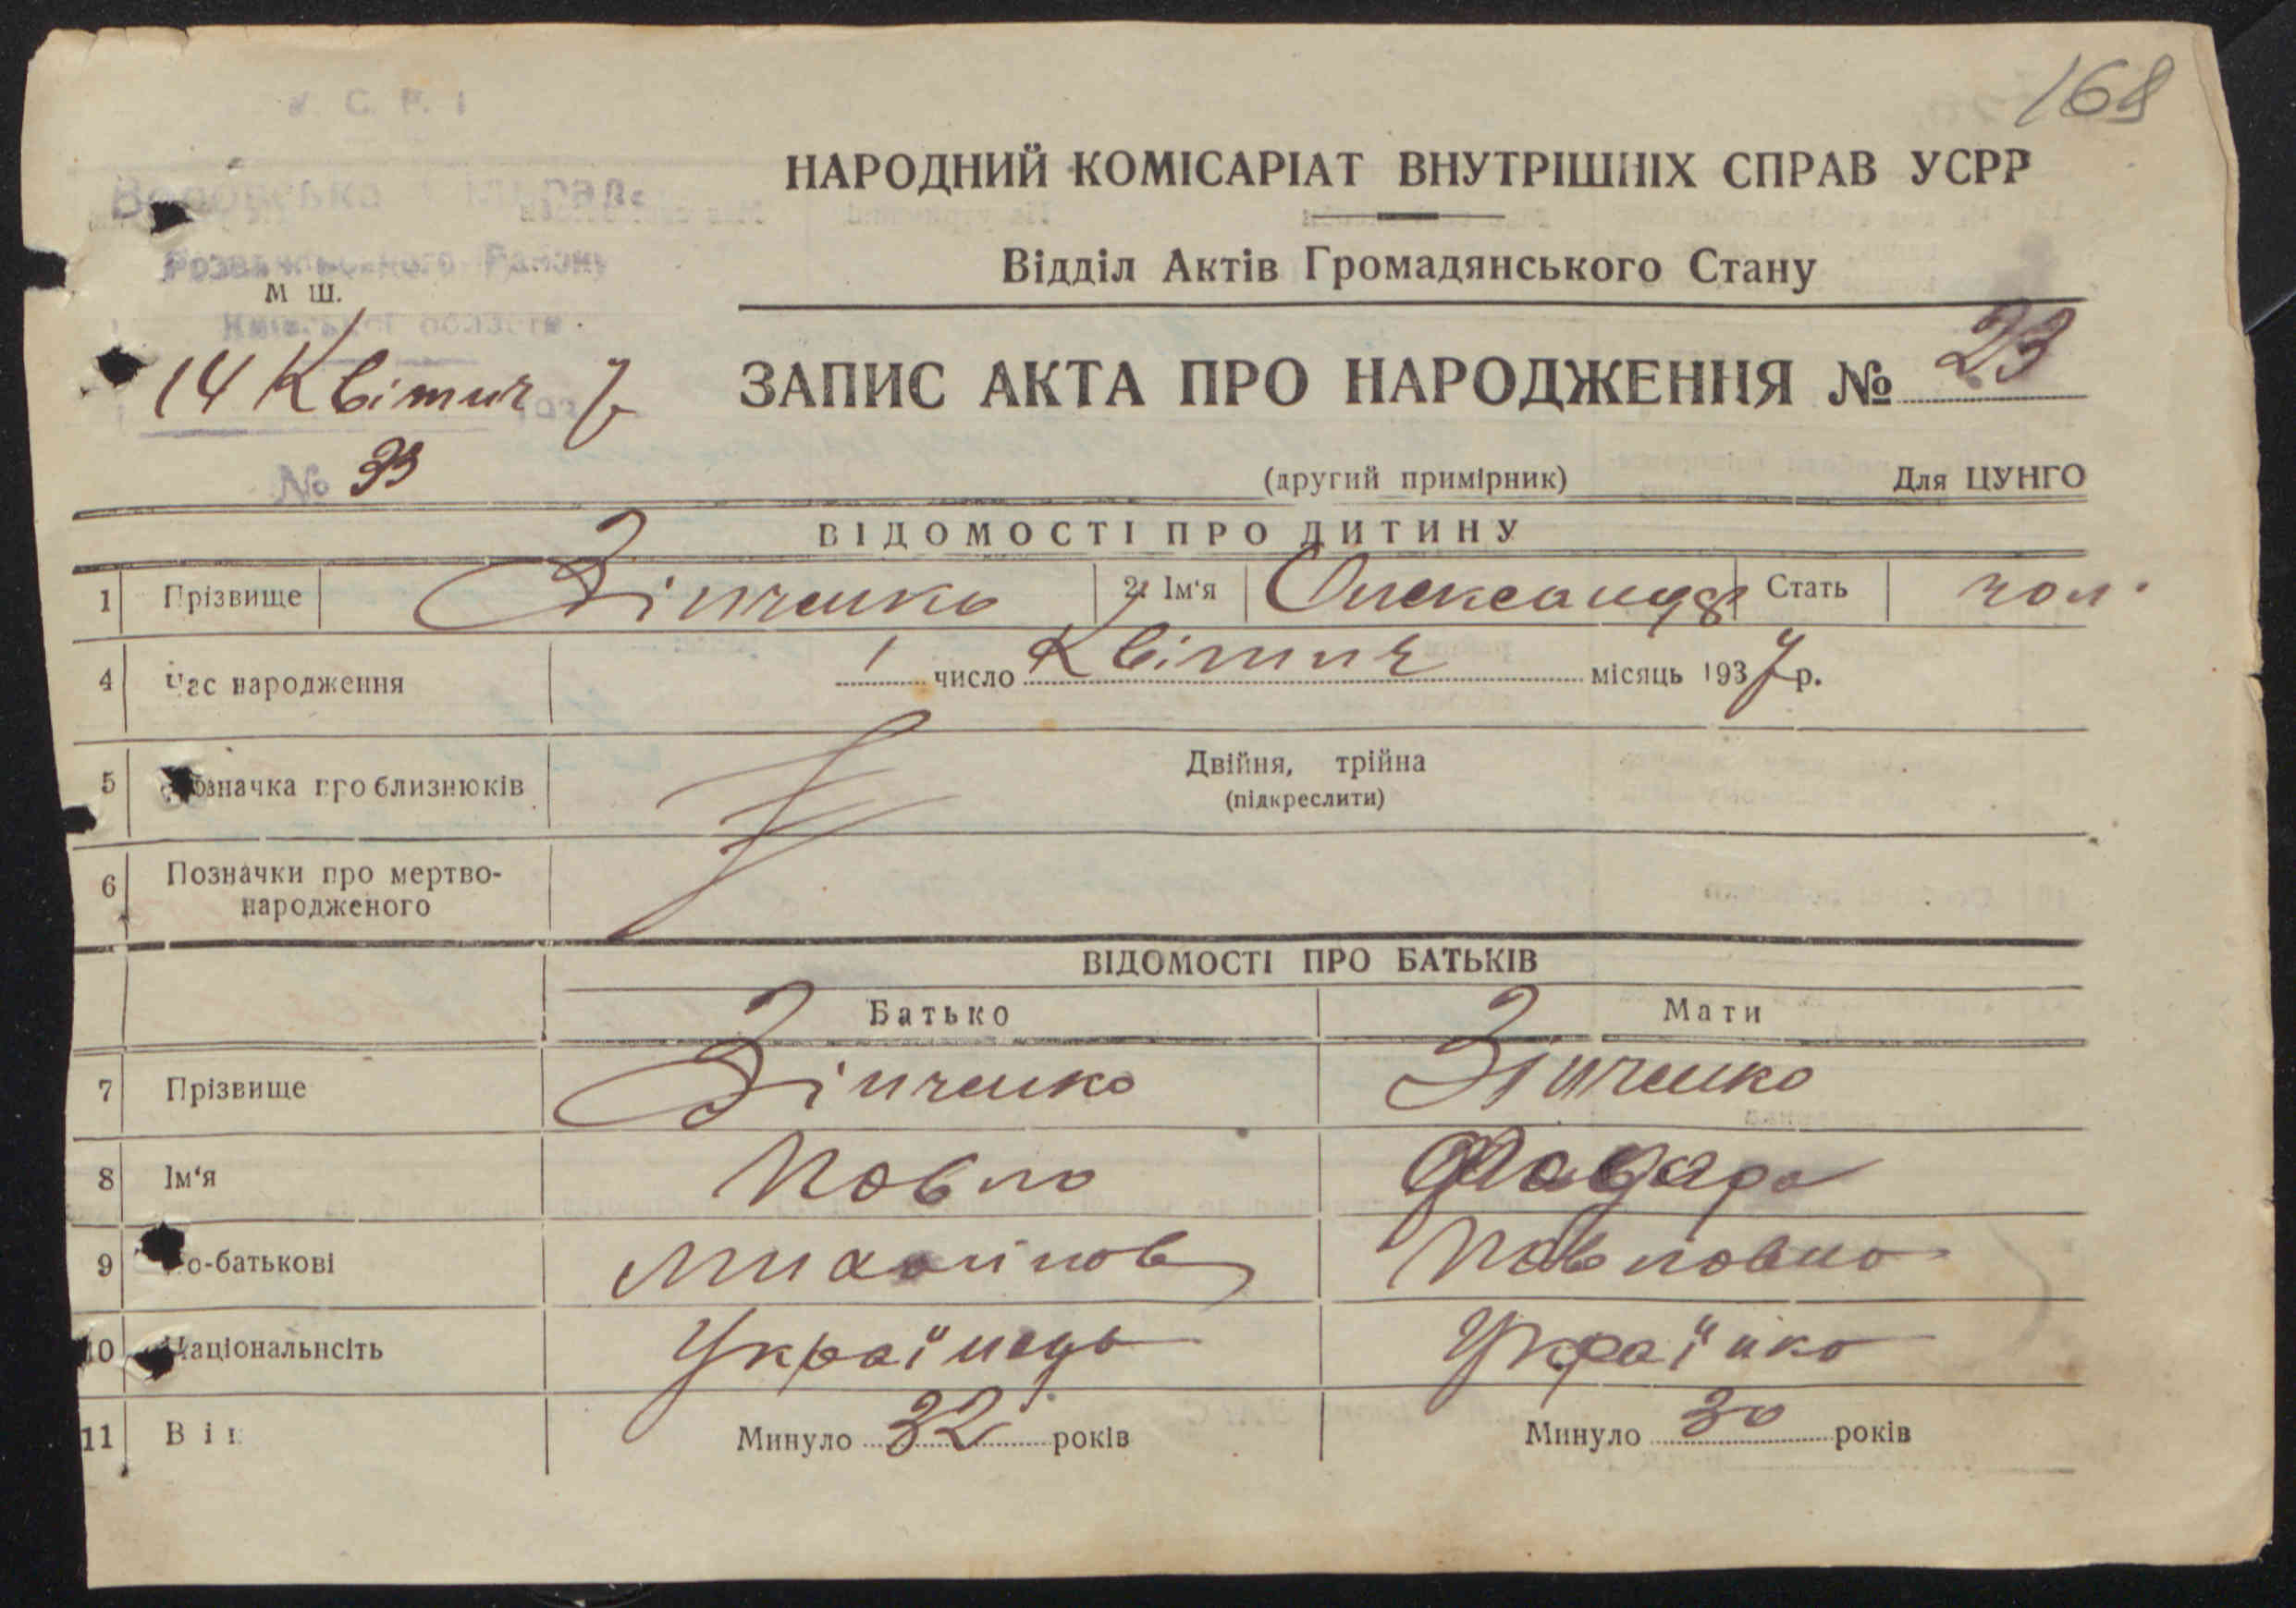 168
НАРОДНИЙ КОМІСАРІАТ ВНУТРІШНІХ СПРАВ УСРР
Відділ Актів Громадянського Стану
Району
М Ш.
області
14 Квітня 7
ЗАПИС АКТА ПРО НАРОДЖЕННЯ № 23
№ 33
(другий примірник) Для ЦУНГО
ВІДОМОСТІ ПРО ДИТИНУ
1 Прізвище Зінченко 2 Ім'я Олександр Стать чол.
4 Час народження 1 число Квітня місяць 1937 р.
5 Позначка про близнюків Двійня, трійна
(підкреслити)
6 Позначки про мертво-
народженого
ВІДОМОСТІ ПРО БАТЬКІВ
Батько Мати
7 Прізвище Зінченко Зінченко
8 Ім'я Павло
9 По-батькові Павловна
10 Національнсіть Українець Українка
11 Вік Минуло 32 років Минуло 30 років